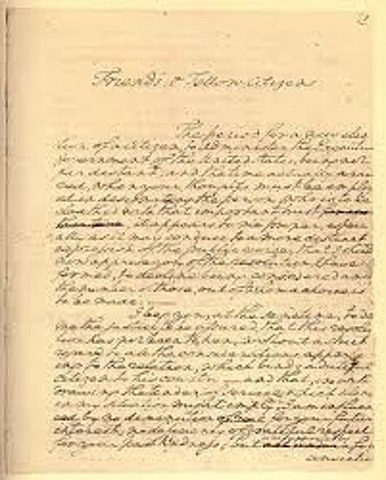 Friends, & Fellow-Citizens
The period for a new elec-
tion of a Citizen, to administer the Executive
government of the United States, being not
far distant, and the time actually arri-
ved, when your thoughts must be employ-
ed in designating the person, who is to be
cloathed with that important trust
it appears to me proper, especi-
ally as it may conduce to a more distinct
expression of the public voice, that I should
now apprise you of the resolution I have
formed, to decline being considered among
the number of those, out of whom a choice is
to be made.
I beg you, at the same time, to do
me the justice to be assured, that this resolu-
tion has not been taken, without a strict
regard to all the considerations appertain-
ing to the relation, which binds a dutiful
citizen to his country - and that, in with-
drawing the tender of service which silence
in my situation might imply, I am influen-
ced by no diminution of zeal for your future
interest, no deficiency of grateful respect
for your past kindness; but